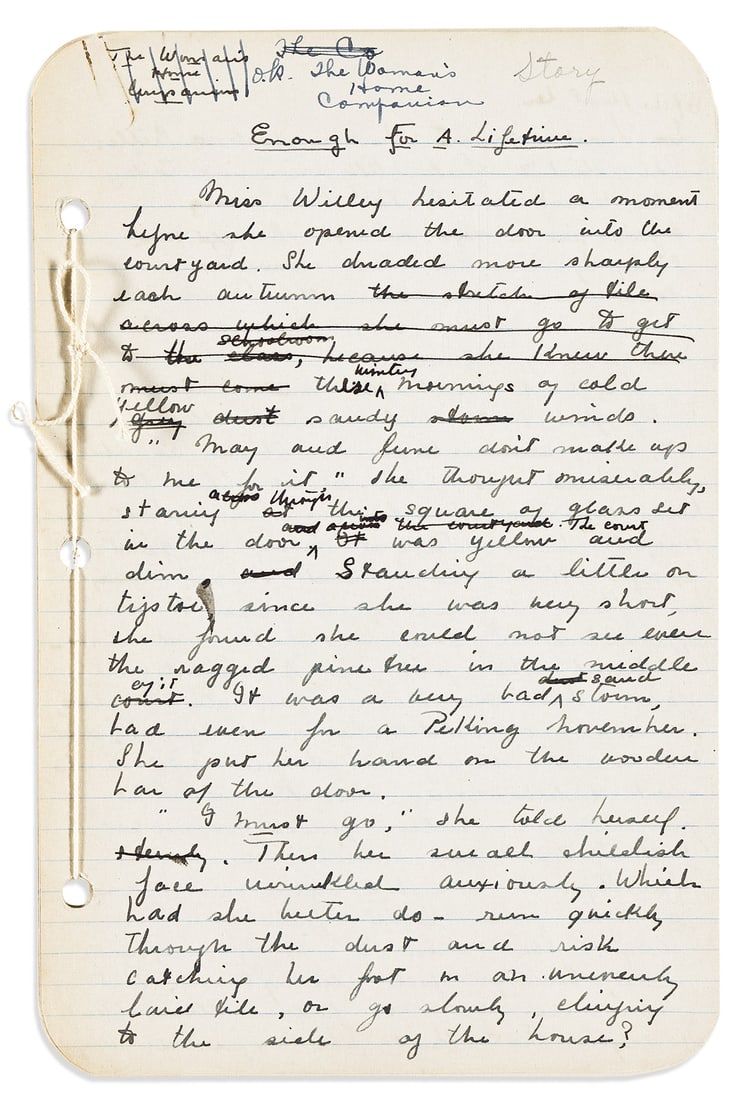 The Woman's
Home
Companion
The Co
O.K. The Woman's
Home
Companion
Story
Enough For A Lifetime.
Miss Willey hesitated a moment
before she opened the door into the
courtyard. She dreaded more sharply
each autumn the stretch of tile
across which she must go to get
schoolroom
to the class, because she knew there
winter
must come these mornings of cold
yellow
grey dust sandy storm winds.
"May and June don't make up
to me for it" she thought miserably,
across through
staring at the square of glass set
and across into the courtyard. The court
in the door. It was yellow and
dim, and Standing a little on
tiptoe, since she was very short,
she found she could not see even
the ragged pine tree in the middle
of it dust sand
court. It was a very bad storm,
bad even for a Peking November.
She put her hand on the wooden
bar of the door.
"I must go," she told herself.
sternly. Then her small childish
face wrinkled anxiously. Which
had she better do - run quickly
through the dust and risk
catching her foot on an unevenly
laid tile, or go slowly, clinging
to the side of the house?